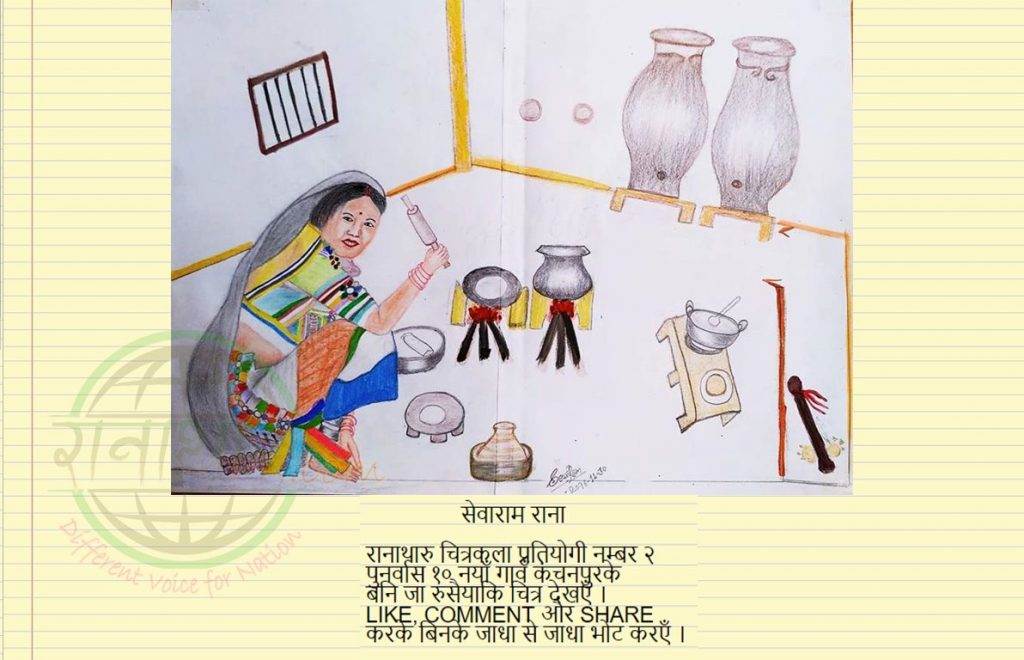 2076-11-30
सेवाराम राना
रानाथारु चित्रकला प्रतियोगी नम्बर २
पुनर्वास १० नयाँ गावँ कंचनपुरके
बनि जा रुसैयाकि चित्र देखएँ ।
LIKE, COMMENT और SHARE
करके बिनके जाधा से जाधा भोट करएँ ।
Different Voice for Nation